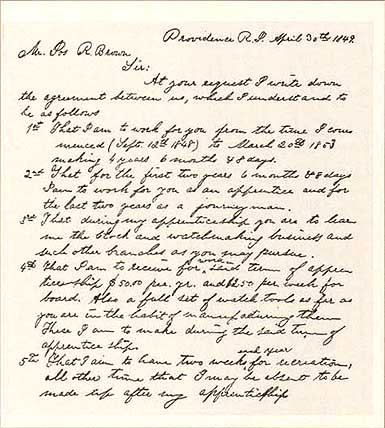 Providence R.I. April 30th 1849.
Mr. Jos R. Brown
Sir:
At your request I write down
the agreement between us, which I understand to
be as follows
1st That I am to work for you from the time I com
menced (Sept. 12th 1848) to March 20th 1853
making 4 years 6 months & 8 days.
2nd That for the first two years 6 months & 8 days
I am to work for you as an apprentice and for
the last two years as a journeyman.
3rd That during my apprenticeship you are to learn
me the clock and watchmaking business and
such other branches as you may pursue.
4th That I am to receive for said term of appren
ticeship $50.00 per. yr. and $2.50 per week for
board. Also a full set of watch tools as far as
you are in the habit of manufacturing them
These I am to make during the said term of
apprentice ship.
5th That I am to have two weeks each year for recreation,
all other time that I may be absent to be
made up after my apprenticeship